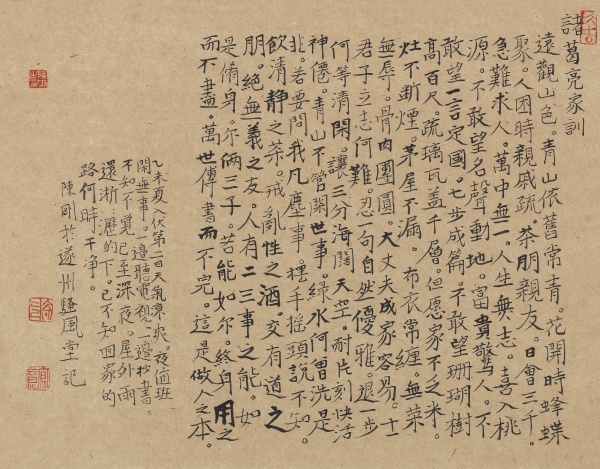 諸葛亮家訓
遠觀山色。青山依舊常青。花開時蜂蝶
聚。人困時親戚疏。茶朋親友。日會三千。
急難求人。萬中無一。人生無志。喜入桃
源。不敢望名聲動地。富貴驚人。不
敢望一言定國。七步成篇。不敢望珊瑚樹
高百尺。琉璃瓦盖千層。但愿家不乏米。
灶不断煙。茅屋不漏。布衣常纏。無菜
無辱。骨肉團圓。大丈夫成家容易。士
君子立志何難。忍一句自然優雅。退一步
何等清閑。讓三分海闊天空。耐片刻快活
神僊。青山不管閑世事。綠水何曾洗是
非。若要問我凡塵事。摆手摇頭說不知。
飲清静之茶。戒亂性之酒。交有道之
朋。絶無義之友。人有二三事之能。如
是脩身。尔俩三子。若能如尔。終身用之
而不盡。萬世傳書而不完。這是做人之本。
乙未夏入伏第一日天氣凉爽。夜值班
閑無事。一邊聽電視。一邊抄書。
不知不覺已至深夜。屋外雨
還淅瀝的下。已不知回家的
路何時干净。
陳剛於遂州風堂記